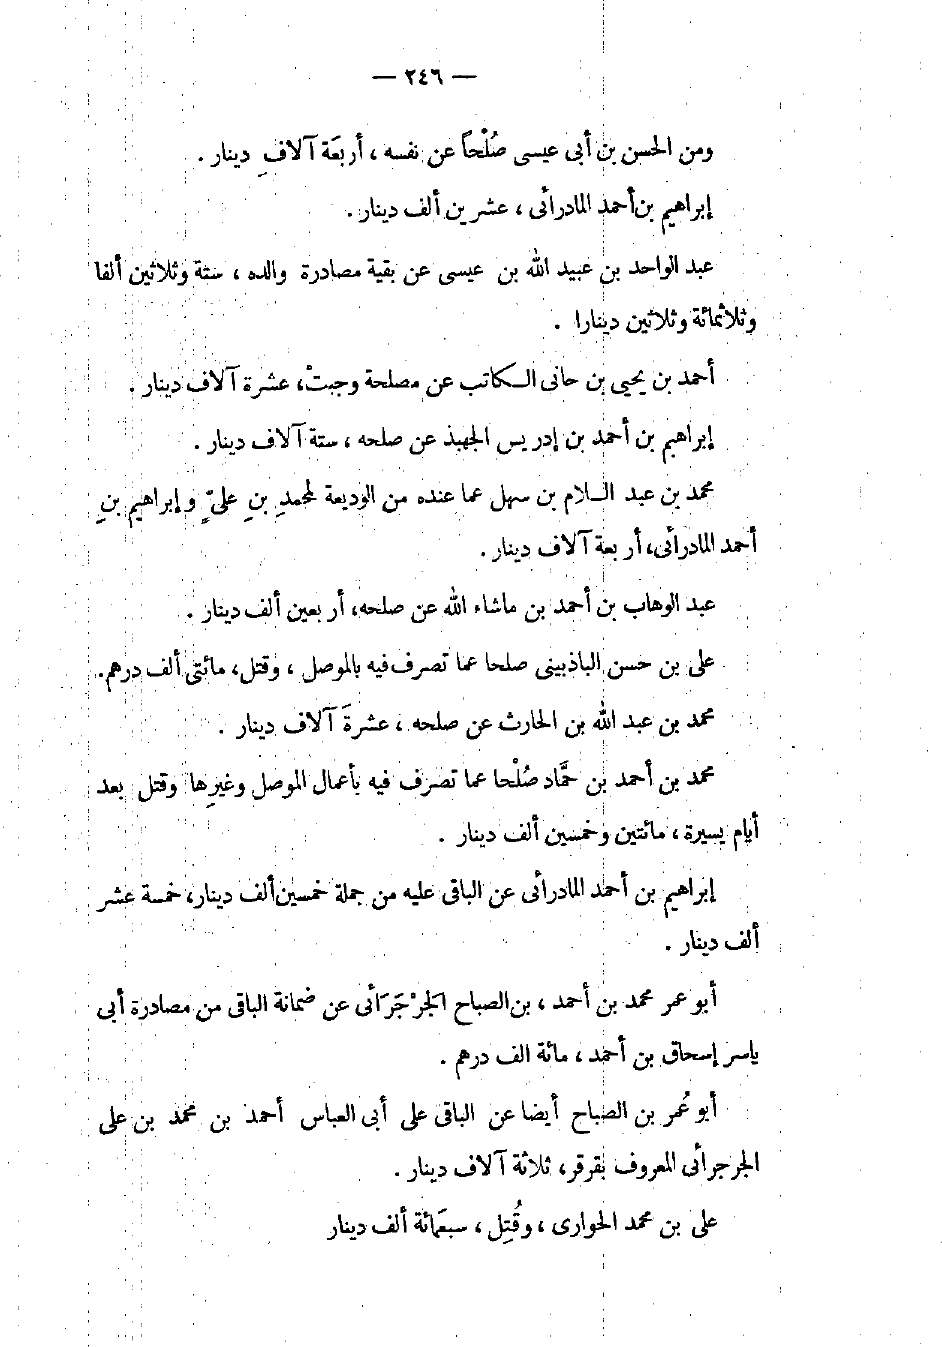 — ٢٤٦ —
ومن الحسن بن أبى عيسى صُلْحاً عن نفسه ، أربعَة آلافِ دينار .
إبراهيم بن أحمد المادرائى ، عشرين ألف دينار .
عبد الواحد بن عبيد الله بن عيسى عن بقية مصادرة والده ، ستة وثلاثين ألفا
وثلاثمائة وثلاثين دينارا .
أحمد بن يحيى بن حانى الكاتب عن مصلحة وجبتْ، عشرة آلاف دينار .
إبراهيم بن أحمد بن إدريس الجهبذ عن صلحه ، ستة آلاف دينار .
محمد بن عبد السلام بن سهل عما عنده من الوديعة لمحمدِ بنِ علىٍّ وإبراهيم بنِ
أحمد المادرائى، أربعة آلاف دينار .
عبد الوهاب بن أحمد بن ماشاء الله عن صلحه، أربعين ألف دينار .
على بن حسن الباذبينى صلحا عما تصرف فيه بالموصل ، وقتل، مائتى ألف درهم.
محمد بن عبد الله بن الحارث عن صلحه ، عشرةَ آلاف دينار .
محمد بن أحمد بن حمَّاد صُلْحا عما تصرف فيه بأعمال الموصل وغيرِها وقتل بعد
أيام يسيرة ، مائتين وخمسين ألف دينار .
إبراهيم بن أحمد المادرائى عن الباقى عليه من جملة خمسين ألف دينار، خمسة عشر
ألف دينار .
أبو عمر محمد بن أحمد ، بن الصباح الجرْجَرَائى عن ضمانة الباقى من مصادرة أبى
ياسر إسحاق بن أحمد ، مائة الف درهم .
أبو عُمر بن الصباح أيضا عن الباقى على أبى العباس أحمد بن محمد بن على
الجرجرائى المعروف بقرقر، ثلاثة آلاف دينار .
على بن محمد الحوارى ، وقُتِل ، سبعَمائة ألف دينار